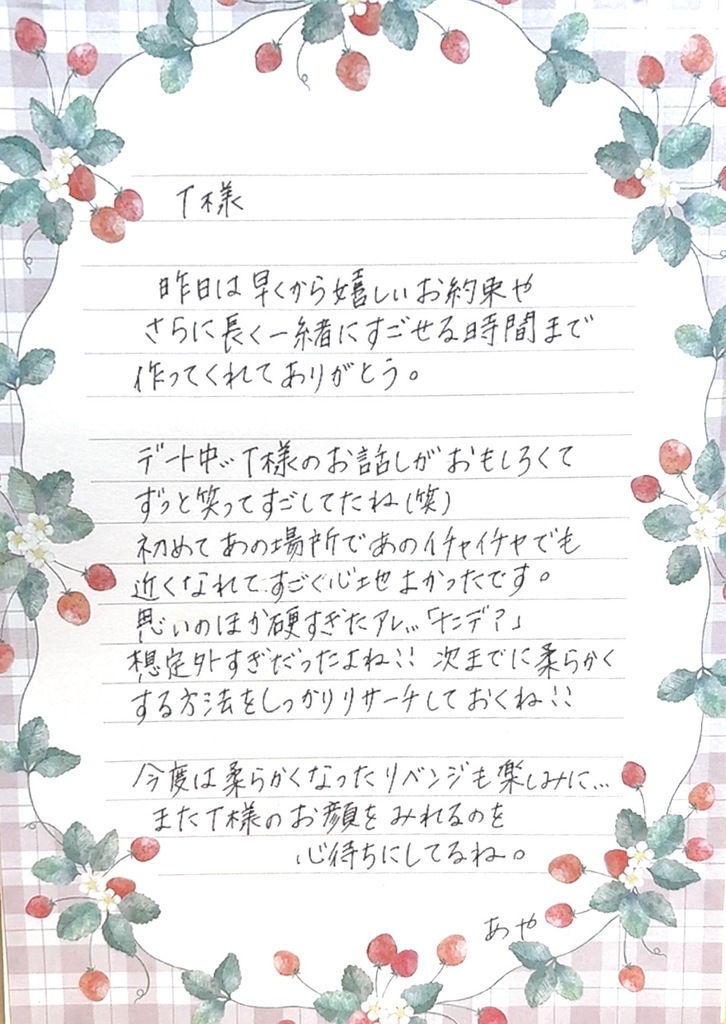 T様
昨日は早くから嬉しいお約束や
さらに長く一緒にすごせる時間まで
作ってくれてありがとう。
デート中… T様のお話しがおもしろくて
ずっと笑ってすごしてたね(笑)
初めてあの場所であのイチャイチャでも
近くなれてすごぐ心地よかったです。
思いのほか硬すぎたアレ…「ナニデ?」
想定外すぎだったよね!! 次までに柔らかく
する方法をしっかりリサーチしておくね!!
今度は柔らかくなったリベンジも楽しみに…
またT様のお顔をみれるのを
心待ちにしてるね。
あや